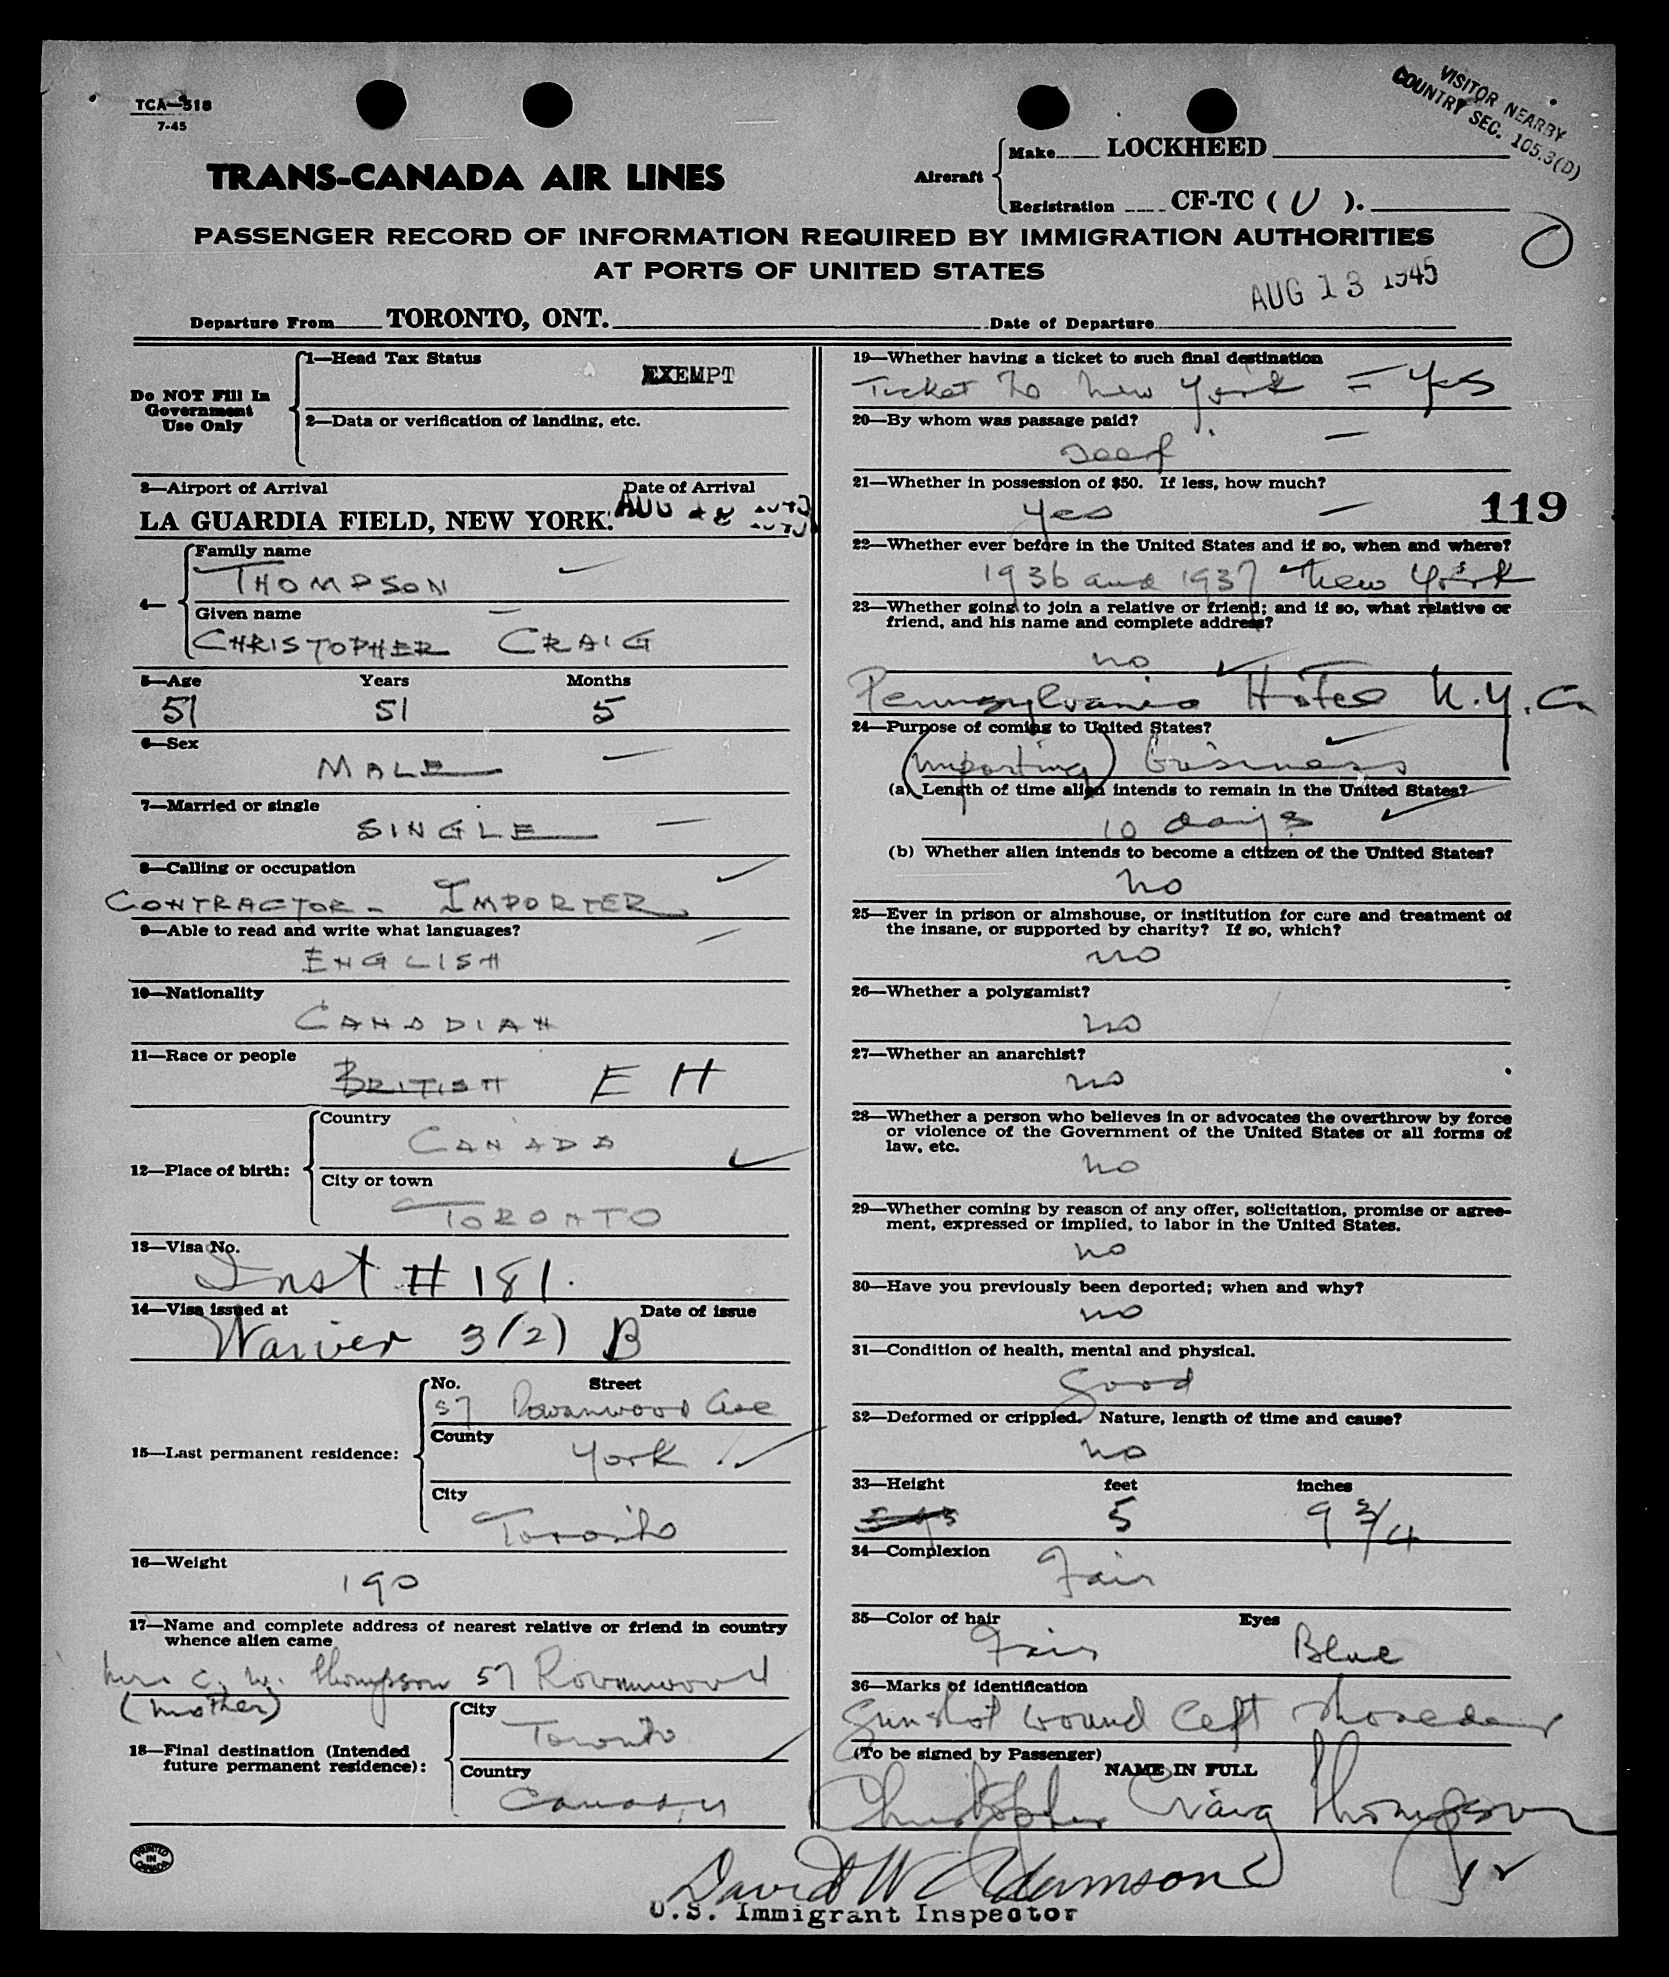 TCA—518
7-45
VISITOR NEARBY
COUNTRY SEC. 105.3(D)
TRANS-CANADA AIR LINES
Aircraft
Make LOCKHEED
Registration CF-TC ( U ).
PASSENGER RECORD OF INFORMATION REQUIRED BY IMMIGRATION AUTHORITIES
AT PORTS OF UNITED STATES
AUG 13 1945
Departure From TORONTO, ONT. Date of Departure
Do NOT Fill In
Government
Use Only
1—Head Tax Status
EXEMPT
2—Data or verification of landing, etc.
3—Airport of Arrival Date of Arrival
LA GUARDIA FIELD, NEW YORK. AUG
4—
Family name
THOMPSON
Given name
CHRISTOPHER CRAIG
5—Age Years Months
51 51 5
6—Sex
MALE
7—Married or single
SINGLE
8—Calling or occupation
CONTRACTOR - IMPORTER
9—Able to read and write what languages?
ENGLISH
10—Nationality
CANADIAN
11—Race or people
BRITISH E H
12—Place of birth:
Country
CANADA
City or town
TORONTO
13—Visa No.
Inst # 181.
14—Visa issued at Date of issue
Waiver 3(2) B
15—Last permanent residence:
No. Street
57 Rowanwood Ave
County
York
City
Toronto
16—Weight
190
17—Name and complete address of nearest relative or friend in country
whence alien came
Mrs C. W. Thompson 57 Rowanwood
(mother)
18—Final destination (Intended
future permanent residence):
City
Toronto
Country
Canada
PRINTED
IN
CANADA
19—Whether having a ticket to such final destination
Ticket to New York = Yes
20—By whom was passage paid?
Self
21—Whether in possession of $50. If less, how much?
Yes
119
22—Whether ever before in the United States and if so, when and where?
1936 and 1937 New York
23—Whether going to join a relative or friend; and if so, what relative or
friend, and his name and complete address?
no
Pennsylvania Hotel N.Y.C.
24—Purpose of coming to United States?
(importing) business
(a) Length of time alien intends to remain in the United States?
10 days
(b) Whether alien intends to become a citizen of the United States?
no
25—Ever in prison or almshouse, or institution for care and treatment of
the insane, or supported by charity? If so, which?
no
26—Whether a polygamist?
no
27—Whether an anarchist?
no
28—Whether a person who believes in or advocates the overthrow by force
or violence of the Government of the United States or all forms of
law, etc.
no
29—Whether coming by reason of any offer, solicitation, promise or agree-
ment, expressed or implied, to labor in the United States.
no
30—Have you previously been deported; when and why?
no
31—Condition of health, mental and physical.
Good
32—Deformed or crippled. Nature, length of time and cause?
no
33—Height feet inches
5 9 3/4
34—Complexion
Fair
35—Color of hair Eyes
Fair Blue
36—Marks of identification
Gunshot wound left shoulder
(To be signed by Passenger)
NAME IN FULL
Christopher Craig Thompson
David W Adamson
U.S. Immigrant Inspector